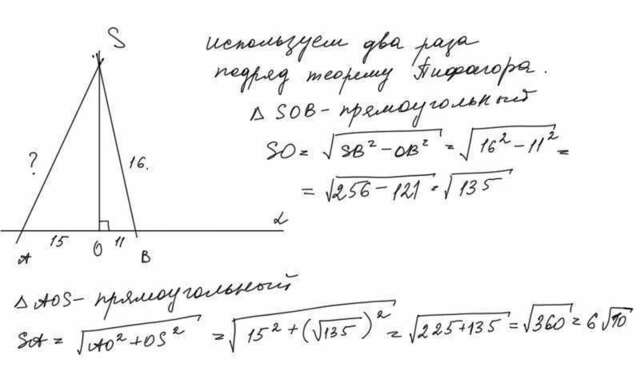 S
используем два раза
подряд теорему Пифагора.
△ SOB - прямоугольный
SO = √(SB² - OB²) = √(16² - 11²) =
= √(256 - 121) = √135
?
16.
α
15
11
A
O
B
△ AOS - прямоугольный
SA = √(AO² + OS²) = √(15² + (√135)²) = √(225 + 135) = √360 = 6√10